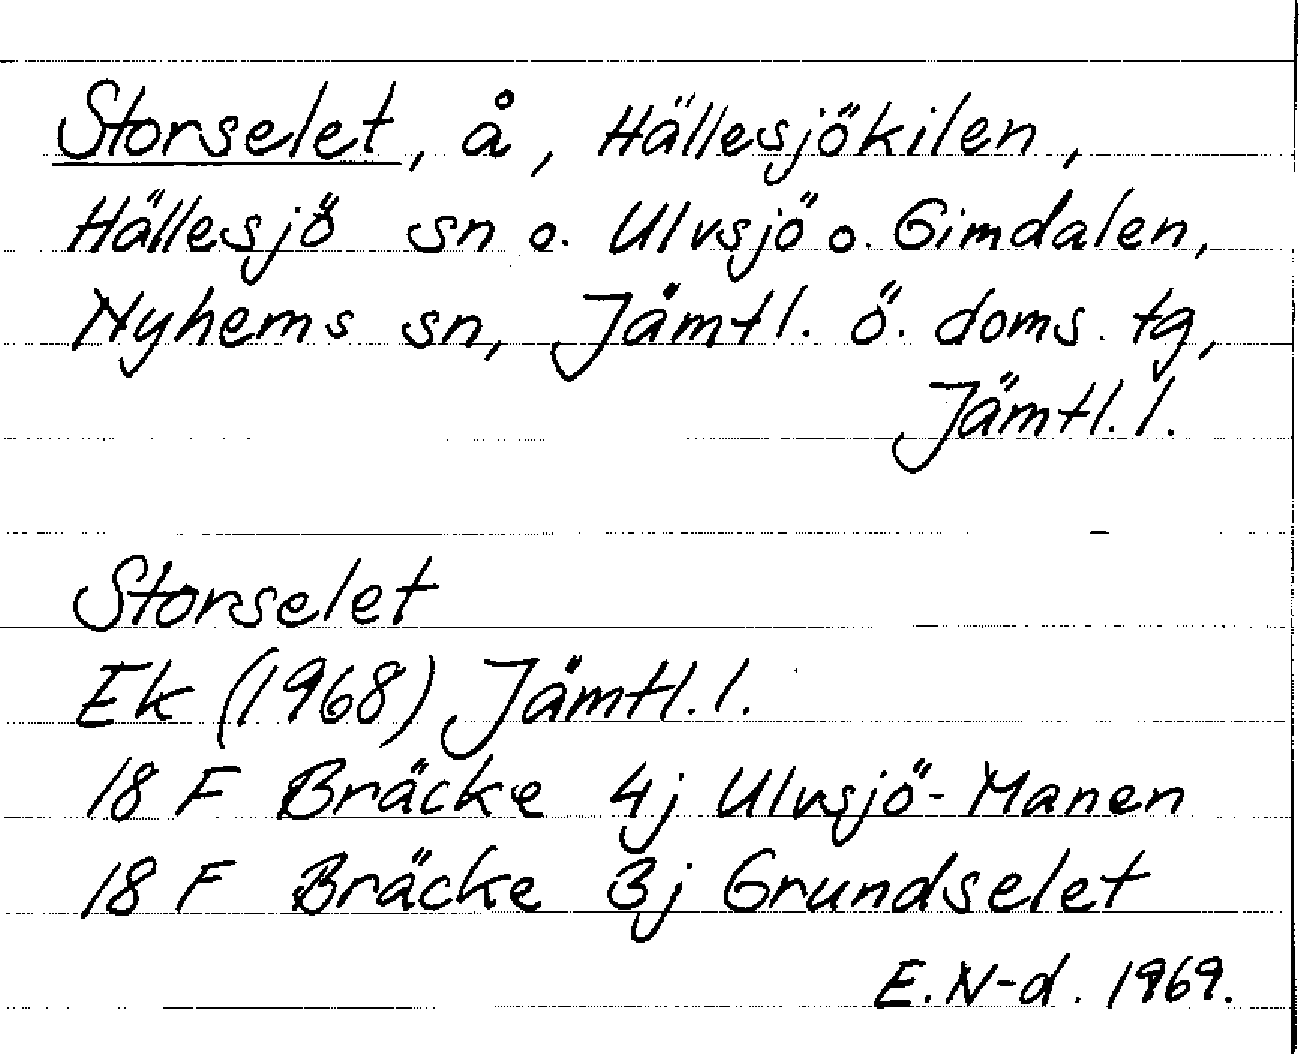 Storselet, å, Hällesjökilen,
Hällesjö sn o. Ulvsjö o. Gimdalen,
Nyhems sn, Jämtl. ö. doms. tg,
Jämtl. l.
Storselet
Ek (1968) Jämtl. l.
18 F Bräcke 4j Ulvsjö-Manen
18 F Bräcke 3j Grundselet
E. N-d. 1969.